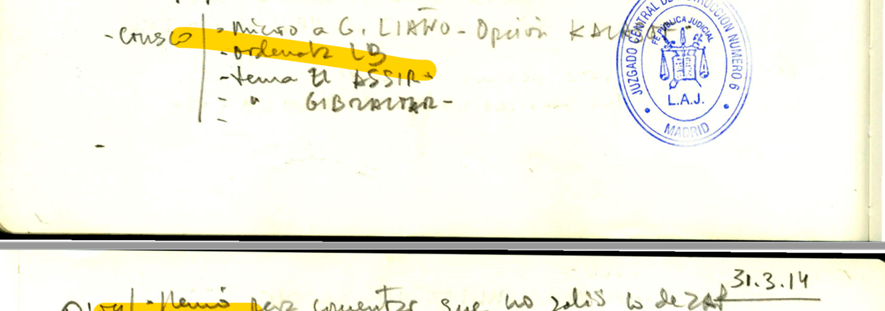 - micro a G. LIAÑO - Opción
- ordenata LB
- tema El ASSIR
- " GIBRALTAR -
-
-
JUZGADO CENTRAL DE INSTRUCCIÓN NÚMERO 6
REPUBLICA JUDICIAL
L.A.J.
MADRID
31.3.14
para comentar que no salis lo de ZAP